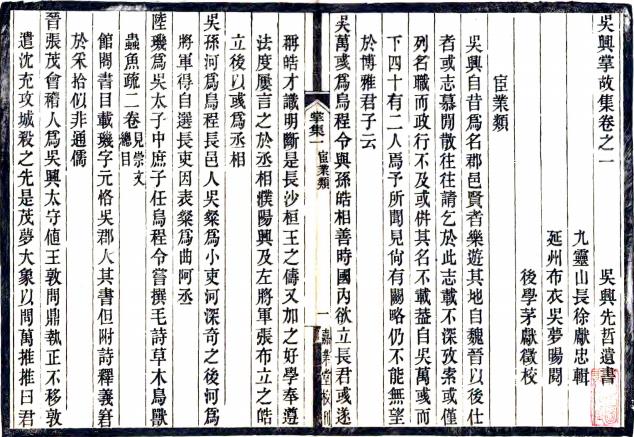 吳興掌故集卷之一　吳興先哲遺書
九靈山長徐獻忠輯
延州布衣吳夢暘閱
後學茅獻徵校
宦業類
吳興自昔爲名郡邑賢者樂遊其地自魏晉以後仕
者或志慕閒散往往請乞於此志載不深攷索或僅
列名職而政行不及或併其名不載葢自吳萬彧而
下四十有二人焉予所聞見尙有闕略仍不能無望
於博雅君子云
吳萬彧爲烏程令與孫皓相善時國內欲立長君彧遂
掌集一　宦業類　一　嘉業堂校刊
稱皓才識明斷是長沙桓王之儔又加之好學奉遵
法度屢言之於丞相濮陽興及左將軍張布立之皓
立後以彧爲丞相
吳孫河爲烏程長邑人吳粲爲小吏河深奇之後河爲
將軍得自選長吏因表粲爲曲阿丞
陸璣爲吳太子中庶子任烏程令嘗撰毛詩草木鳥獸
蟲魚疏二卷見崇文總目
館閣書目載璣字元恪吳郡人其書但附詩釋義窘
於采拾似非通儒
晉張茂會稽人爲吳興太守値王敦問鼎執正不移敦
遣沈充攻城殺之先是茂夢大象以問萬推推曰君